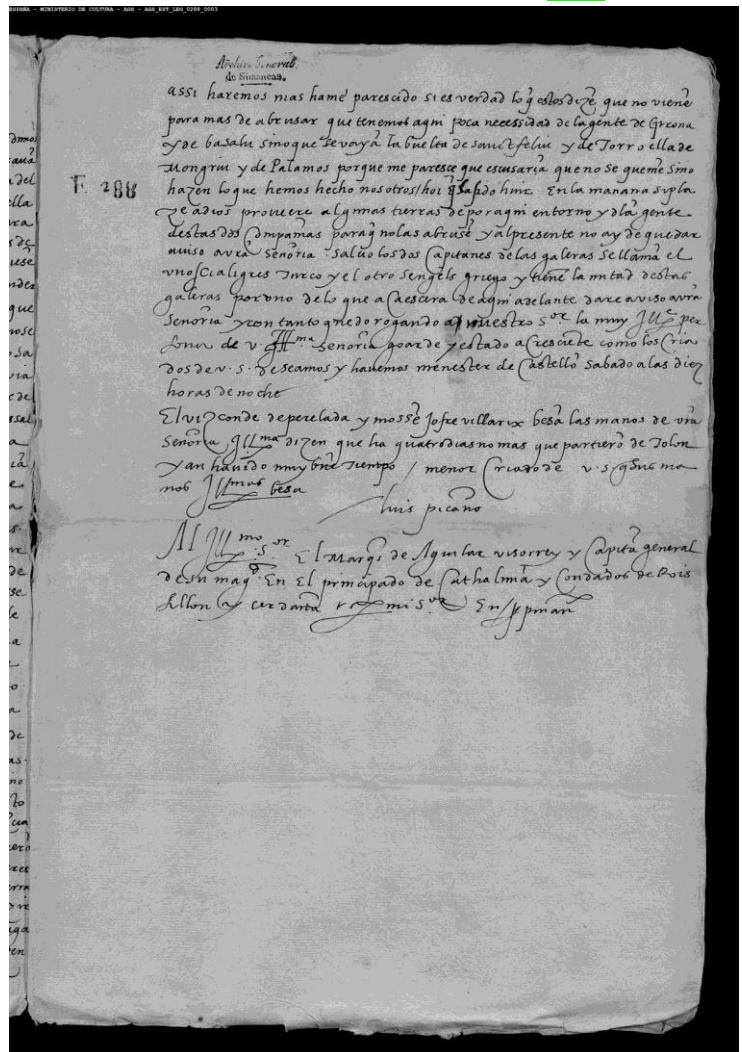 ESPAÑA - MINISTERIO DE CULTURA - AGS - AGS_EST_LEG_0288_0003
Archivo General
de Simancas.
E 288
assi haremos mas hame parescido si es verdad lo q̃ estos dizẽ que no vienẽ
para mas de abrusar que tenemos aqui poca necessidad de la gente de Girona
y de basalu sino que se vayã la buelta de sanct feliu y de Torroella de
Mongriu y de Palamos porque me paresce que escusariã que no se quemẽ sino
hazen lo que hemos hecho nosotros / hoi salido huir En la mañana si pla
ze a dios proveere algunas tierras de por aqui entorno y dla gente
destas dos Compañias paraq̃ no las abrusẽ y al presente no ay de que dar
aviso avr̃a señoria salvo los dos Capitanes de las galeras se llamã el
uno Turco y el otro griego y tienẽ la mitad destas
galeras por uno de lo que acaescera de aqui adelante dare aviso avr̃a
Señoria y con tanto quedo rogando a nuestro S.or la muy Ill.e per
sona de v. Ill.ma señoria goarde y estado acresciete como los Cria
dos de v. s. deseamos y havemos menester de Castellõ sabado a las diez
horas de noche
El vizconde de perelada y mossẽ Jofre villarix besã las manos de vr̃a
Señoria Ill.ma dizen que ha quatro dias no mas que partierõ de Tolon
y an havido muy buẽ tiempo / menor Criado de v. s. q̃ sus ma
nos Ill.mas besa
luis picaño
Al Ill.mo S.or El Marq̃s de Aguilar visorrey y Capitã general
de su mag.d En El principado de Cathaluña y Condados de Rois
sellon y cerdaña mi S.or En ppinañ